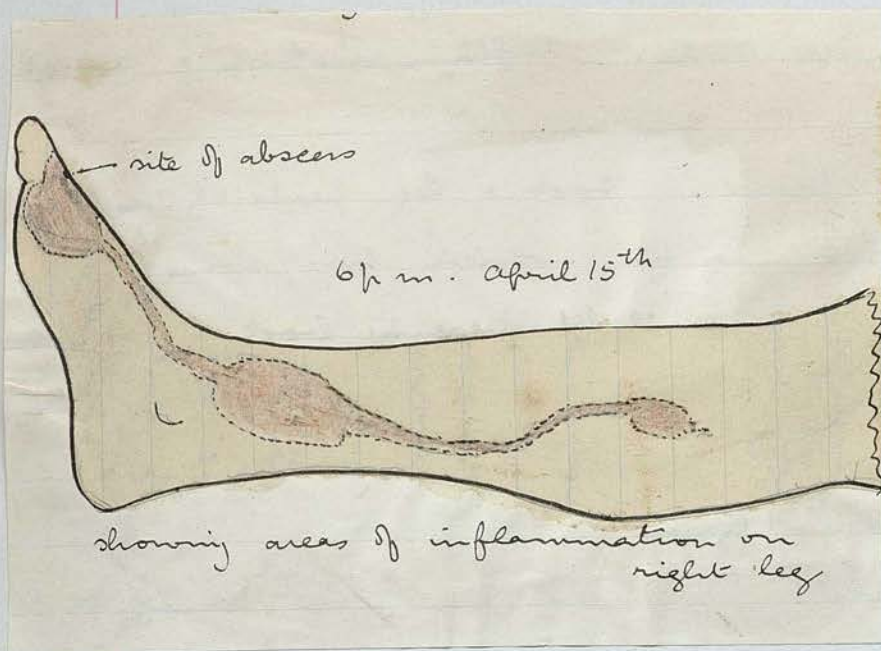 site of abscess
6 p m. April 15th
showing areas of inflammation on
right leg